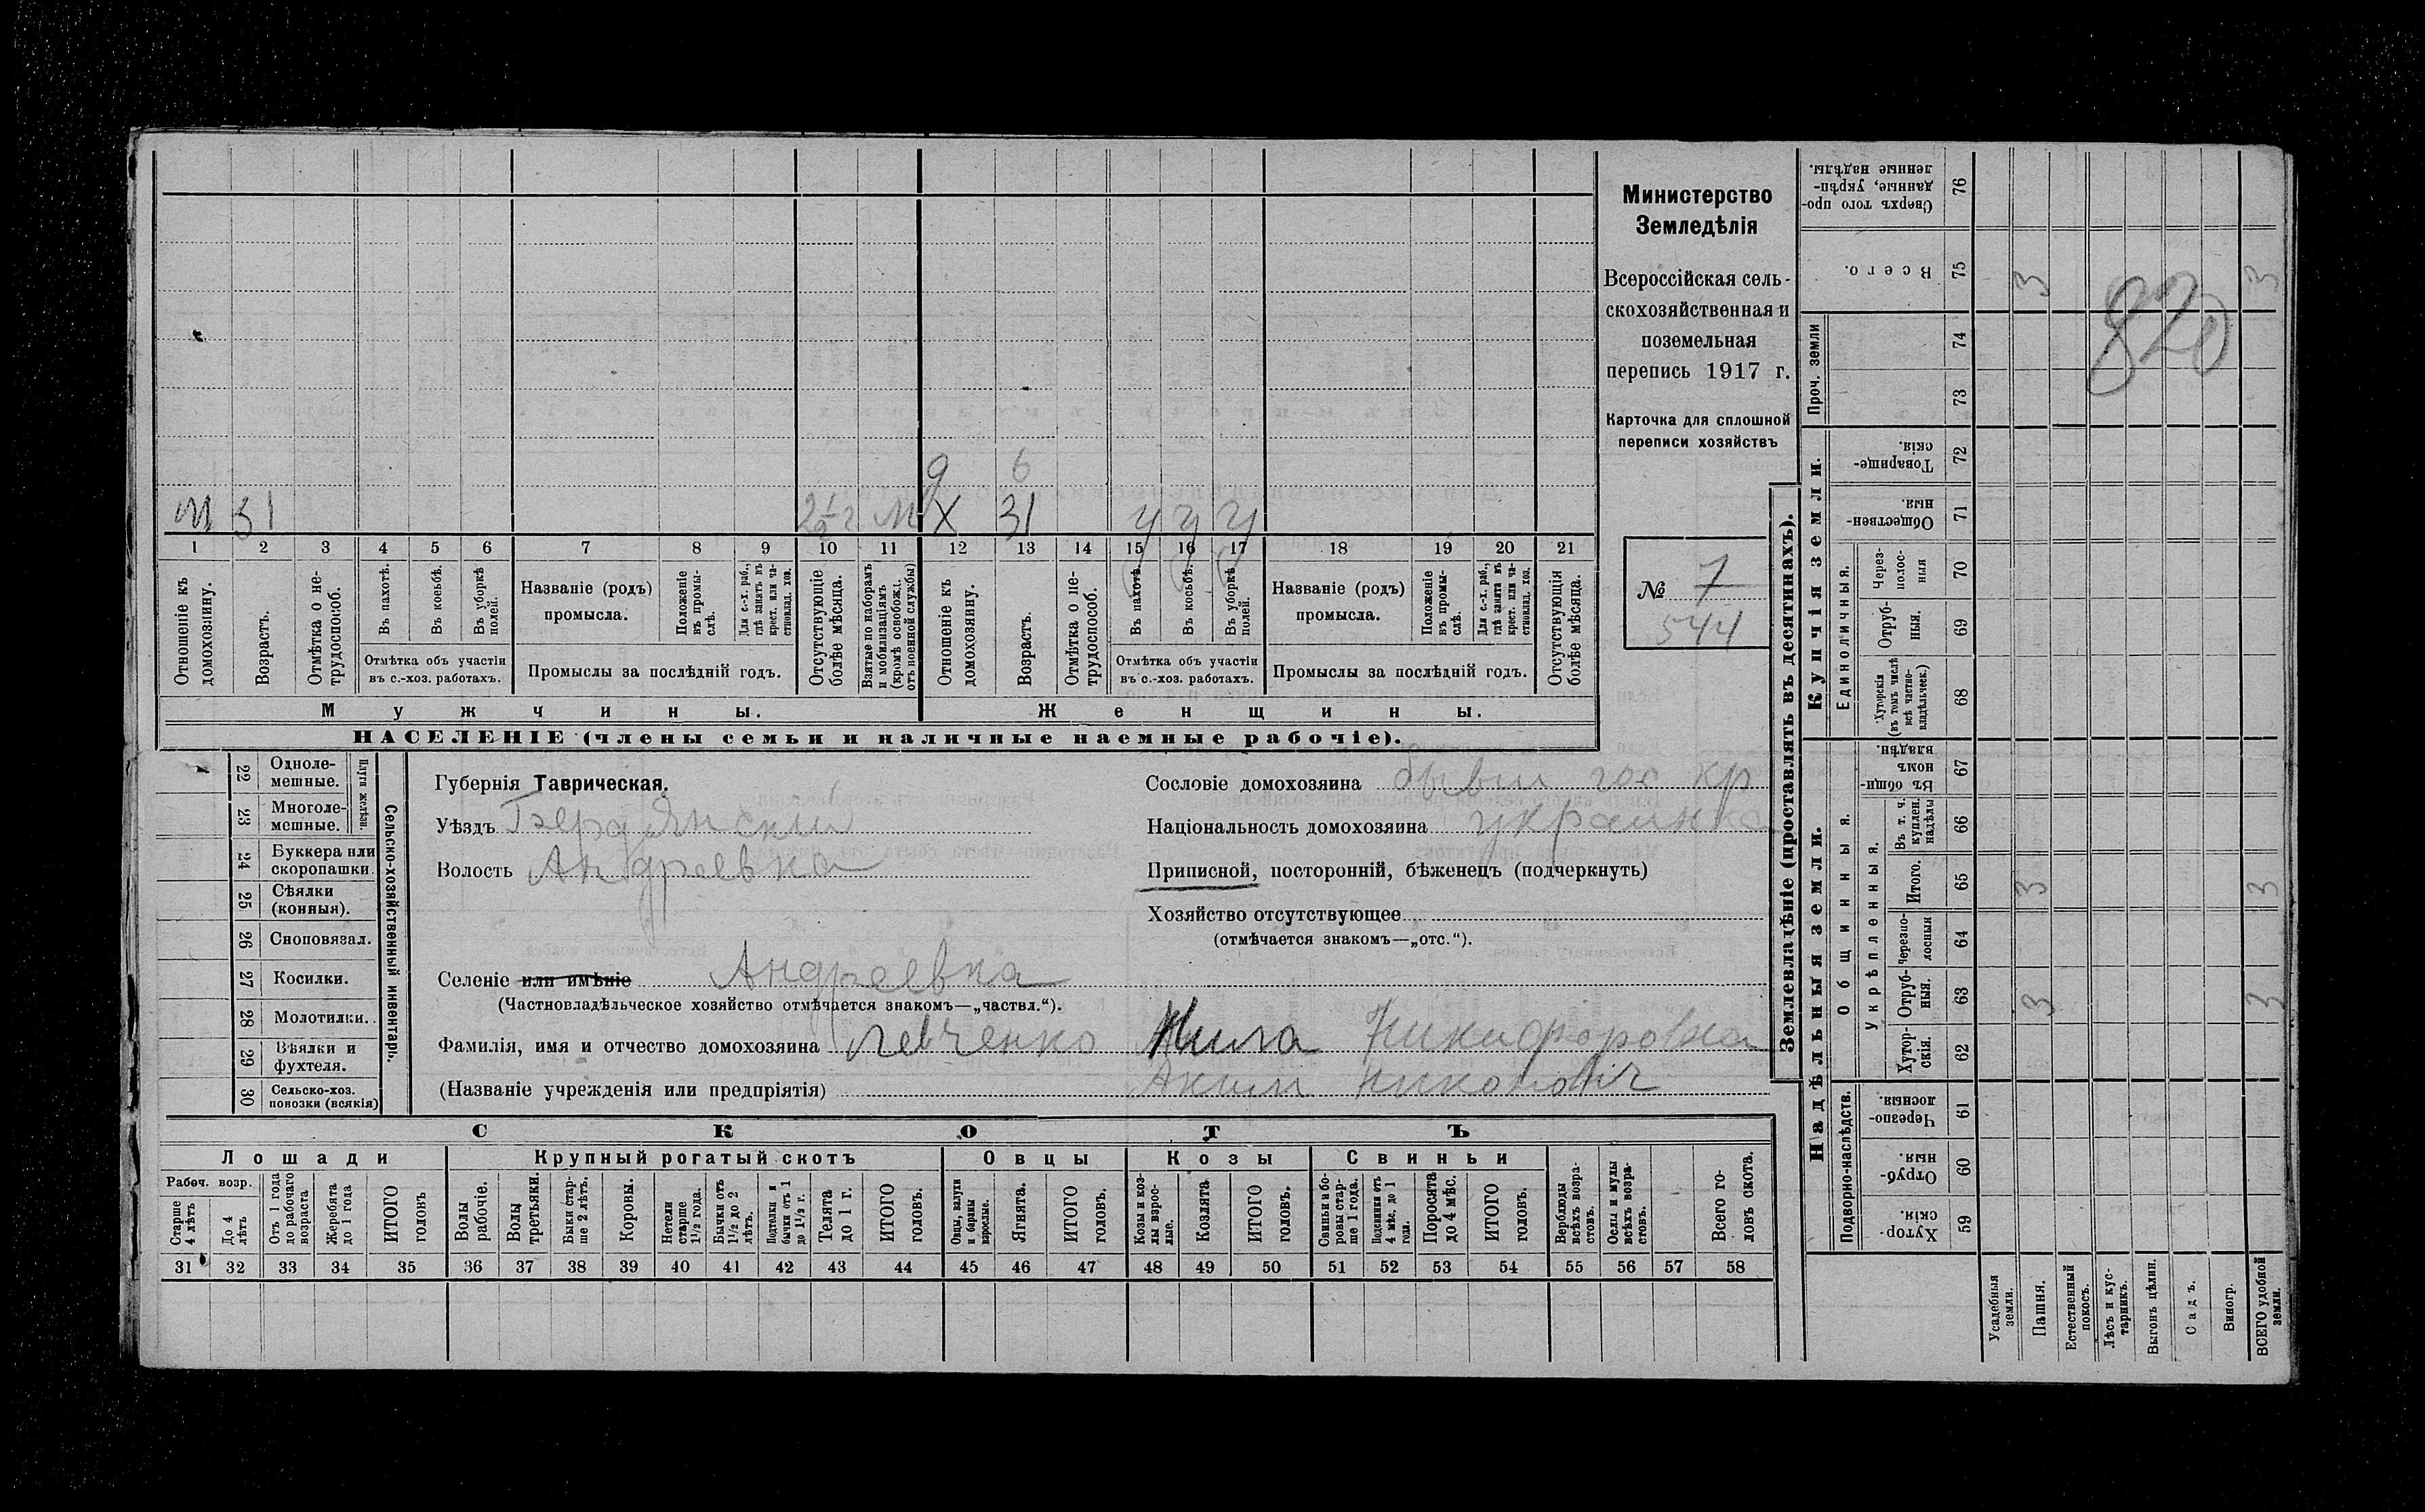 Министерство
Земледѣлія
Всероссійская сель-
скохозяйственная и
поземельная
перепись 1917 г.
Карточка для сплошной
переписи хозяйствъ
№ 7
544
М 31 2½ г М
д 6
Х 31 У У У
1 2 3 4 5 6 7 8 9 10 11 12 13 14 15 16 17 18 19 20 21
Отношеніе къ домохозяину.
Возрастъ.
Отмѣтка о не-трудоспособ.
Въ пахотѣ.
Въ косьбѣ.
Въ уборкѣ полей.
Отмѣтка объ участіи
въ с.-хоз. работахъ.
Названіе (родъ)
промысла.
Положеніе въ промы-слѣ.
Для с.-х. раб., гдѣ занятъ въ крест. или ча-стновлад. хоз.
Промыслы за послѣдній годъ.
Отсутствующіе болѣе мѣсяца.
Взятые по наборамъ и мобилизаціямъ (кромѣ освобожд. отъ военной службы)
Отношеніе къ домохозяину.
Возрастъ.
Отмѣтка о не-трудоспособ.
Въ пахотѣ.
Въ косьбѣ.
Въ уборкѣ полей.
Отмѣтка объ участіи
въ с.-хоз. работахъ.
Названіе (родъ)
промысла.
Положеніе въ промы-слѣ.
Для с.-х. раб., гдѣ занята въ крест. или ча-стновлад. хоз.
Промыслы за послѣдній годъ.
Отсутствующія болѣе мѣсяца.
Мужчины.
Женщины.
НАСЕЛЕНІЕ (члены семьи и наличные наемные рабочіе).
22 Одноле-мешные.
23 Многоле-мешные.
Плуги желѣзн.
24 Буккера или скоропашки.
25 Сѣялки (конныя).
26 Сноповязал.
27 Косилки.
28 Молотилки.
29 Вѣялки и фухтеля.
30 Сельско-хоз. повозки (всякія)
Сельско-хозяйственный инвентарь.
Губернія Таврическая.
Уѣздъ Бердянскій
Волость Андреевка
Селеніе или имѣніе Андреевка
(Частновладѣльческое хозяйство отмѣчается знакомъ—„частвл.“).
Сословіе домохозяина бывш гос кр
Національность домохозяина украинка
Приписной, посторонній, бѣженец (подчеркнуть)
Хозяйство отсутствующее
(отмѣчается знакомъ—„отс.“).
Фамилія, имя и отчество домохозяина Левченко Никифоровна
(Названіе учрежденія или предпріятія) Аким
СКОТЪ
Лошади
Крупный рогатый скотъ
Овцы
Козы
Свиньи
Рабоч. возр.
Старше 4 лѣтъ
До 4 лѣтъ
Отъ 1 года до рабочаго возраста
Жеребята до 1 года
ИТОГО головъ
Волы рабочіе.
Волы третьяки.
Быки стар-ше 2 лѣтъ.
Коровы.
Нетели старше 1½ года.
Бычки отъ 1½ до 2 лѣтъ.
Подтелки и бычки отъ 1 до 1½ г.
Телята до 1 г.
ИТОГО головъ.
Овцы, валухи и бараны взрослые.
Ягнята.
ИТОГО головъ.
Козы и коз-лы взрос-лые.
Козлята.
ИТОГО головъ.
Свиньи и бо-ровы стар-ше 1 года.
Подсвинки отъ 4 мѣс. до 1 года.
Поросята до 4 мѣс.
ИТОГО головъ.
Верблюды всѣхъ возра-стовъ.
Ослы и мулы всѣхъ возра-стовъ.
Всего го-ловъ скота.
31 32 33 34 35 36 37 38 39 40 41 42 43 44 45 46 47 48 49 50 51 52 53 54 55 56 57 58
Землевладѣніе (проставлять въ десятинахъ).
Надѣльныя земли.
Купчія земли.
Проч. земли
Сверхъ того про-данные, укрѣп-ленные надѣлы. 76
Всего. 75 3 3
820
74
73
Товарище-скія. 72
Обществен-ныя. 71
Единоличныя.
Через-полос-ныя 70
Отруб-ныя. 69
Хуторскія (въ томъ числѣ всѣ частно-владѣльческ.) 68
Общинныя.
Въ общи-номъ владѣн. 67
Укрѣпленныя.
Въ т. ч. куплен. надѣлы 66
Итого. 65 3 3
Черезпо-лосныя 64
Отруб-ныя. 63 3 3
Хутор-скія. 62
Подворно-наслѣдств.
Черезпо-лосныя. 61
Отруб-ныя. 60
Хутор-скія. 59
Усадебныя земли.
Пашня.
Естественный покосъ.
Лѣсъ и кус-тарникъ.
Выгонъ цѣлин.
Садъ.
Виногр.
ВСЕГО удобной земли.